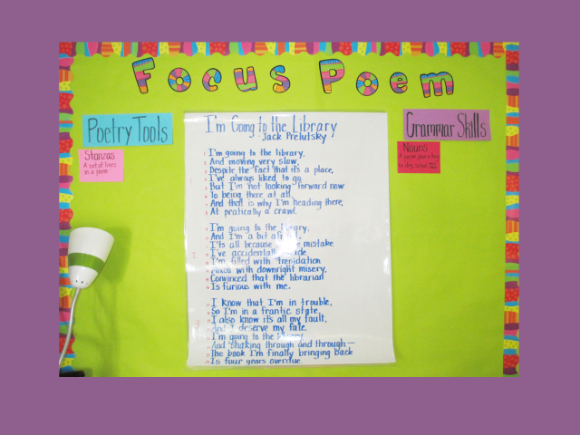 Focus Poem
Poetry Tools
Stanzas
A set of lines
in a poem
I'm Going to the Library
Jack Prelutsky
I'm going to the library,
And moving very slow,
Despite the fact that it's a place,
I've always liked to go
But I'm not looking forward now
To being there at all,
And that is why I'm heading there,
At pratically a crawl.
I'm going to the library,
And I'm a bit
It's all because mistake
I've accidentally
I'm filled with
with downright misery,
Convinced that the librarian
Is furious with me.
I know that I'm in trouble,
So I'm in a frantic state,
I also know it's all my fault,
And I deserve my fate.
I'm going to the library
And shaking through and through—
The book I'm finally bringing back
Is four years overdue.
Grammar Skills
Nouns